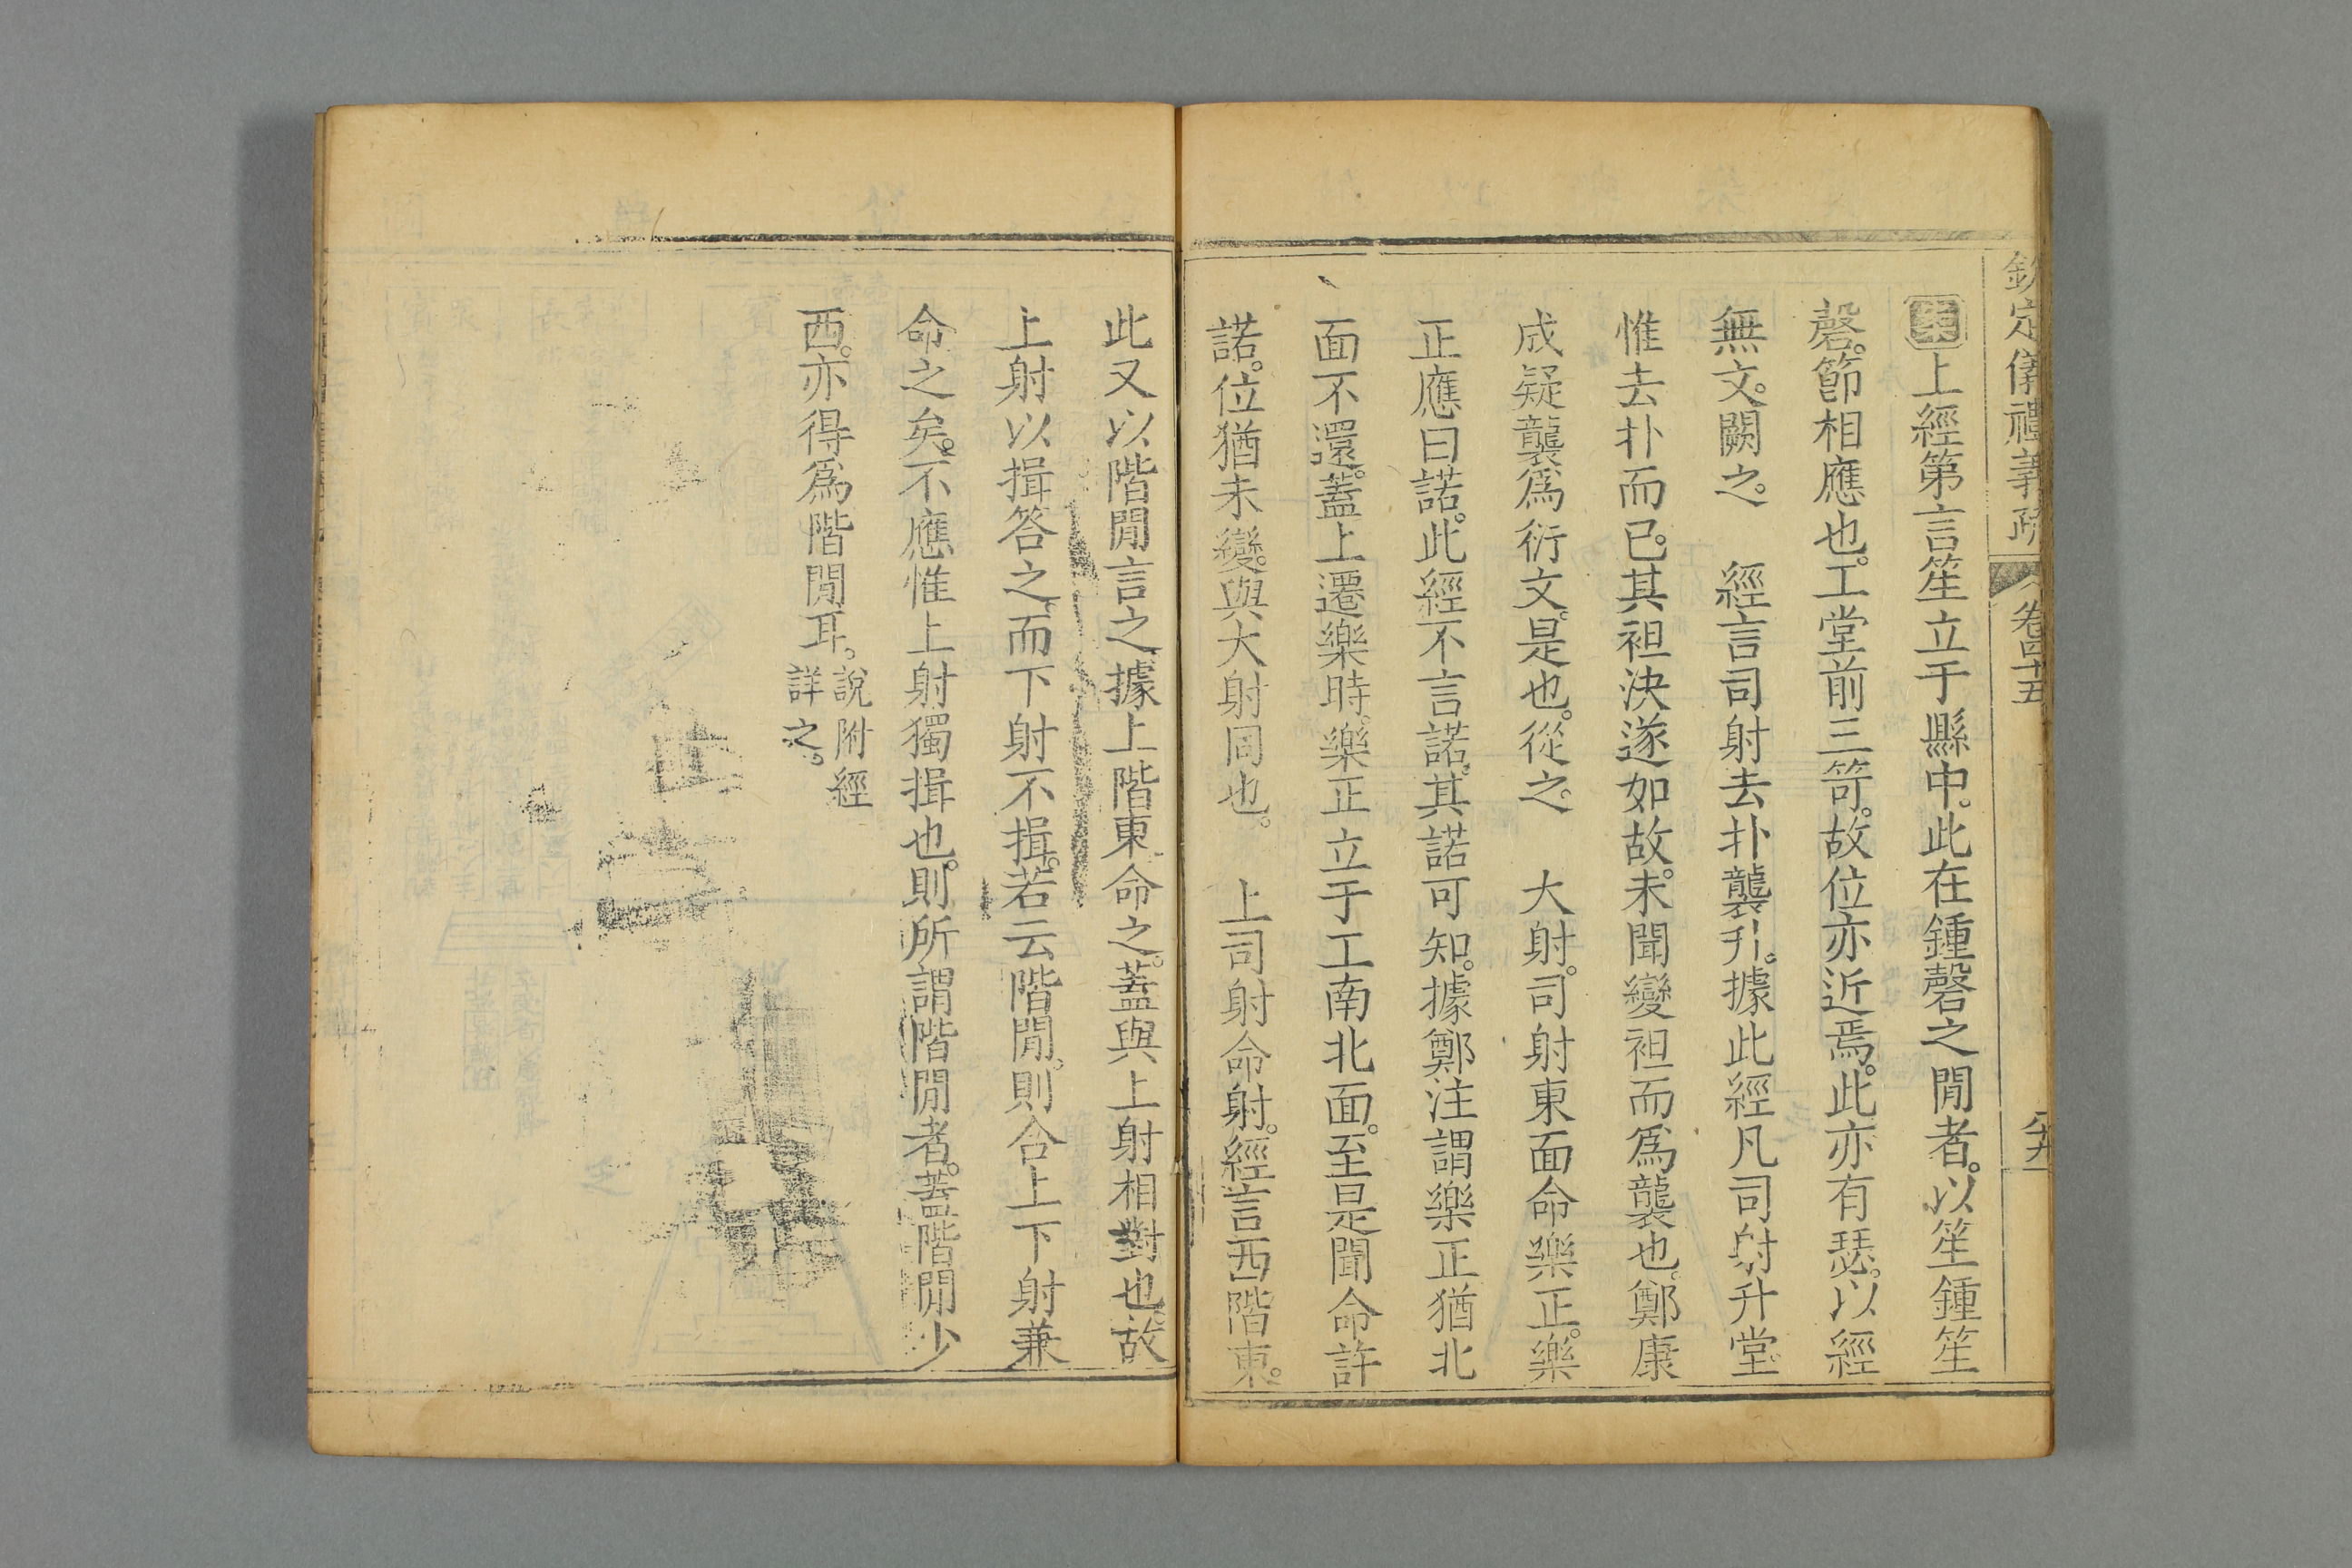 欽定儀禮義疏 卷四十五
案上經第言笙立于縣中。此在鍾磬之閒者。以笙鍾笙
磬。節相應也。工堂前三笴。故位亦近焉。此亦有瑟。以經
無文。闕之。 經言司射去扑襲升。據此經凡司射升堂
惟去扑而已。其袒決遂如故。未聞變袒而爲襲也。鄭康
成疑襲爲衍文。是也。從之。 大射。司射東面命樂正。樂
正應曰諾。此經不言諾。其諾可知。據鄭注謂樂正猶北
面不還。蓋上遷樂時。樂正立于工南北面。至是聞命許
諾。位猶未變。與大射同也。 上司射命射。經言西階東。
此又以階閒言之。據上階東命之。蓋與上射相對也。故
上射以揖答之。而下射不揖。若云階閒。則合上下射兼
命之矣。不應惟上射獨揖也。則所謂階閒者。蓋階閒少
西。亦得爲階閒耳。說附經
詳之。